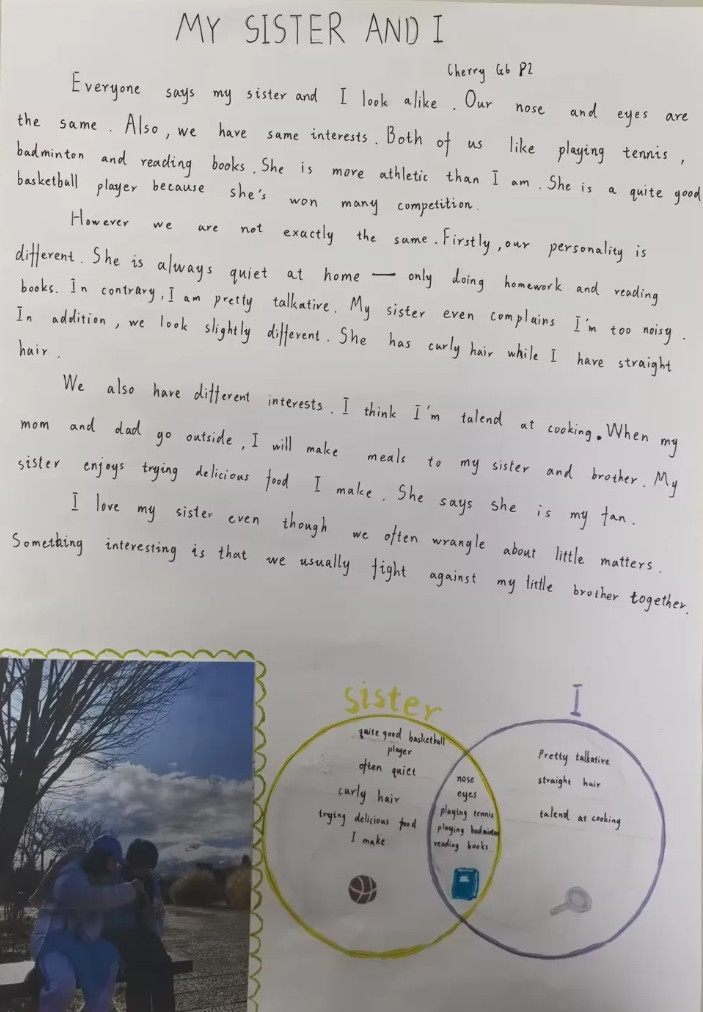 MY SISTER AND I
Cherry G6 P2
Everyone says my sister and I look alike. Our nose and eyes are
the same. Also, we have same interests. Both of us like playing tennis,
badminton and reading books. She is more athletic than I am. She is a quite good
basketball player because she's won many competition.
However we are not exactly the same. Firstly, our personality is
different. She is always quiet at home — only doing homework and reading
books. In contrary, I am pretty talkative. My sister even complains I'm too noisy.
In addition, we look slightly different. She has curly hair while I have straight
hair.
We also have different interests. I think I'm talend at cooking. When my
mom and dad go outside, I will make meals to my sister and brother. My
sister enjoys trying delicious food I make. She says she is my fan.
I love my sister even though we often wrangle about little matters.
Something interesting is that we usually fight against my little brother together.
sister
quite good basketball
player
often quiet
curly hair
trying delicious food
I make
nose
eyes
playing tennis
playing badminton
reading books
I
Pretty talkative
straight hair
talend at cooking